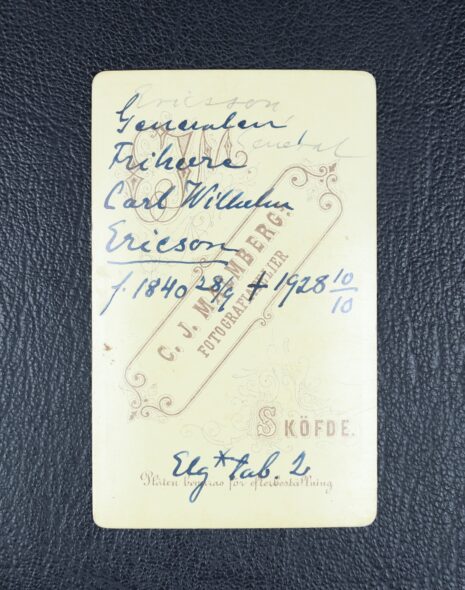 Ericsson
General
Generalen
Friherre
Carl Wilhelm
Ericson
f. 1840 28/9 + 1928 10/10
C. J. MALMBERG.
FOTOGRAFIATELIER
SKÖFDE.
Elg* tab. 2
Plåten bevaras för efterbeställning